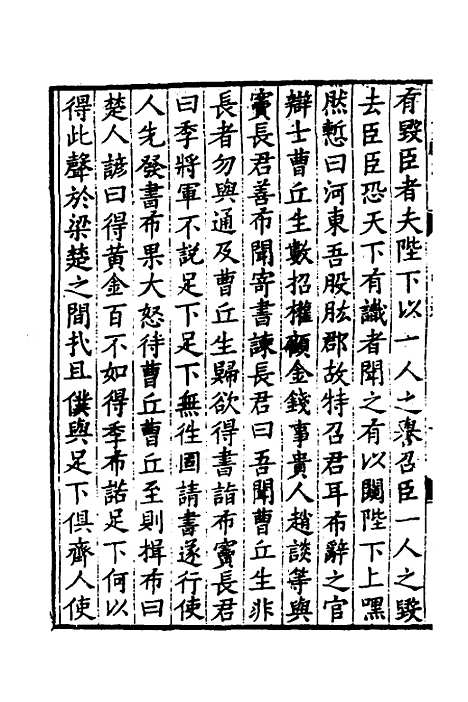 有毀臣者夫陛下以一人之譽召臣一人之毀
去臣臣恐天下有識者聞之有以闚陛下上嘿
然慙曰河東吾股肱郡故特召君耳布辭之官
辯士曹丘生數招權顧金錢事貴人趙談等與
竇長君善布聞寄書諫長君曰吾聞曹丘生非
長者勿與通及曹丘生歸欲得書詣布竇長君
曰季將軍不說足下足下無徃固請書遂行使
人先發書布果大怒待曹丘曹丘至則揖布曰
楚人諺曰得黃金百不如得季布諾足下何以
得此聲於梁楚之間㢤且僕與足下俱齊人使